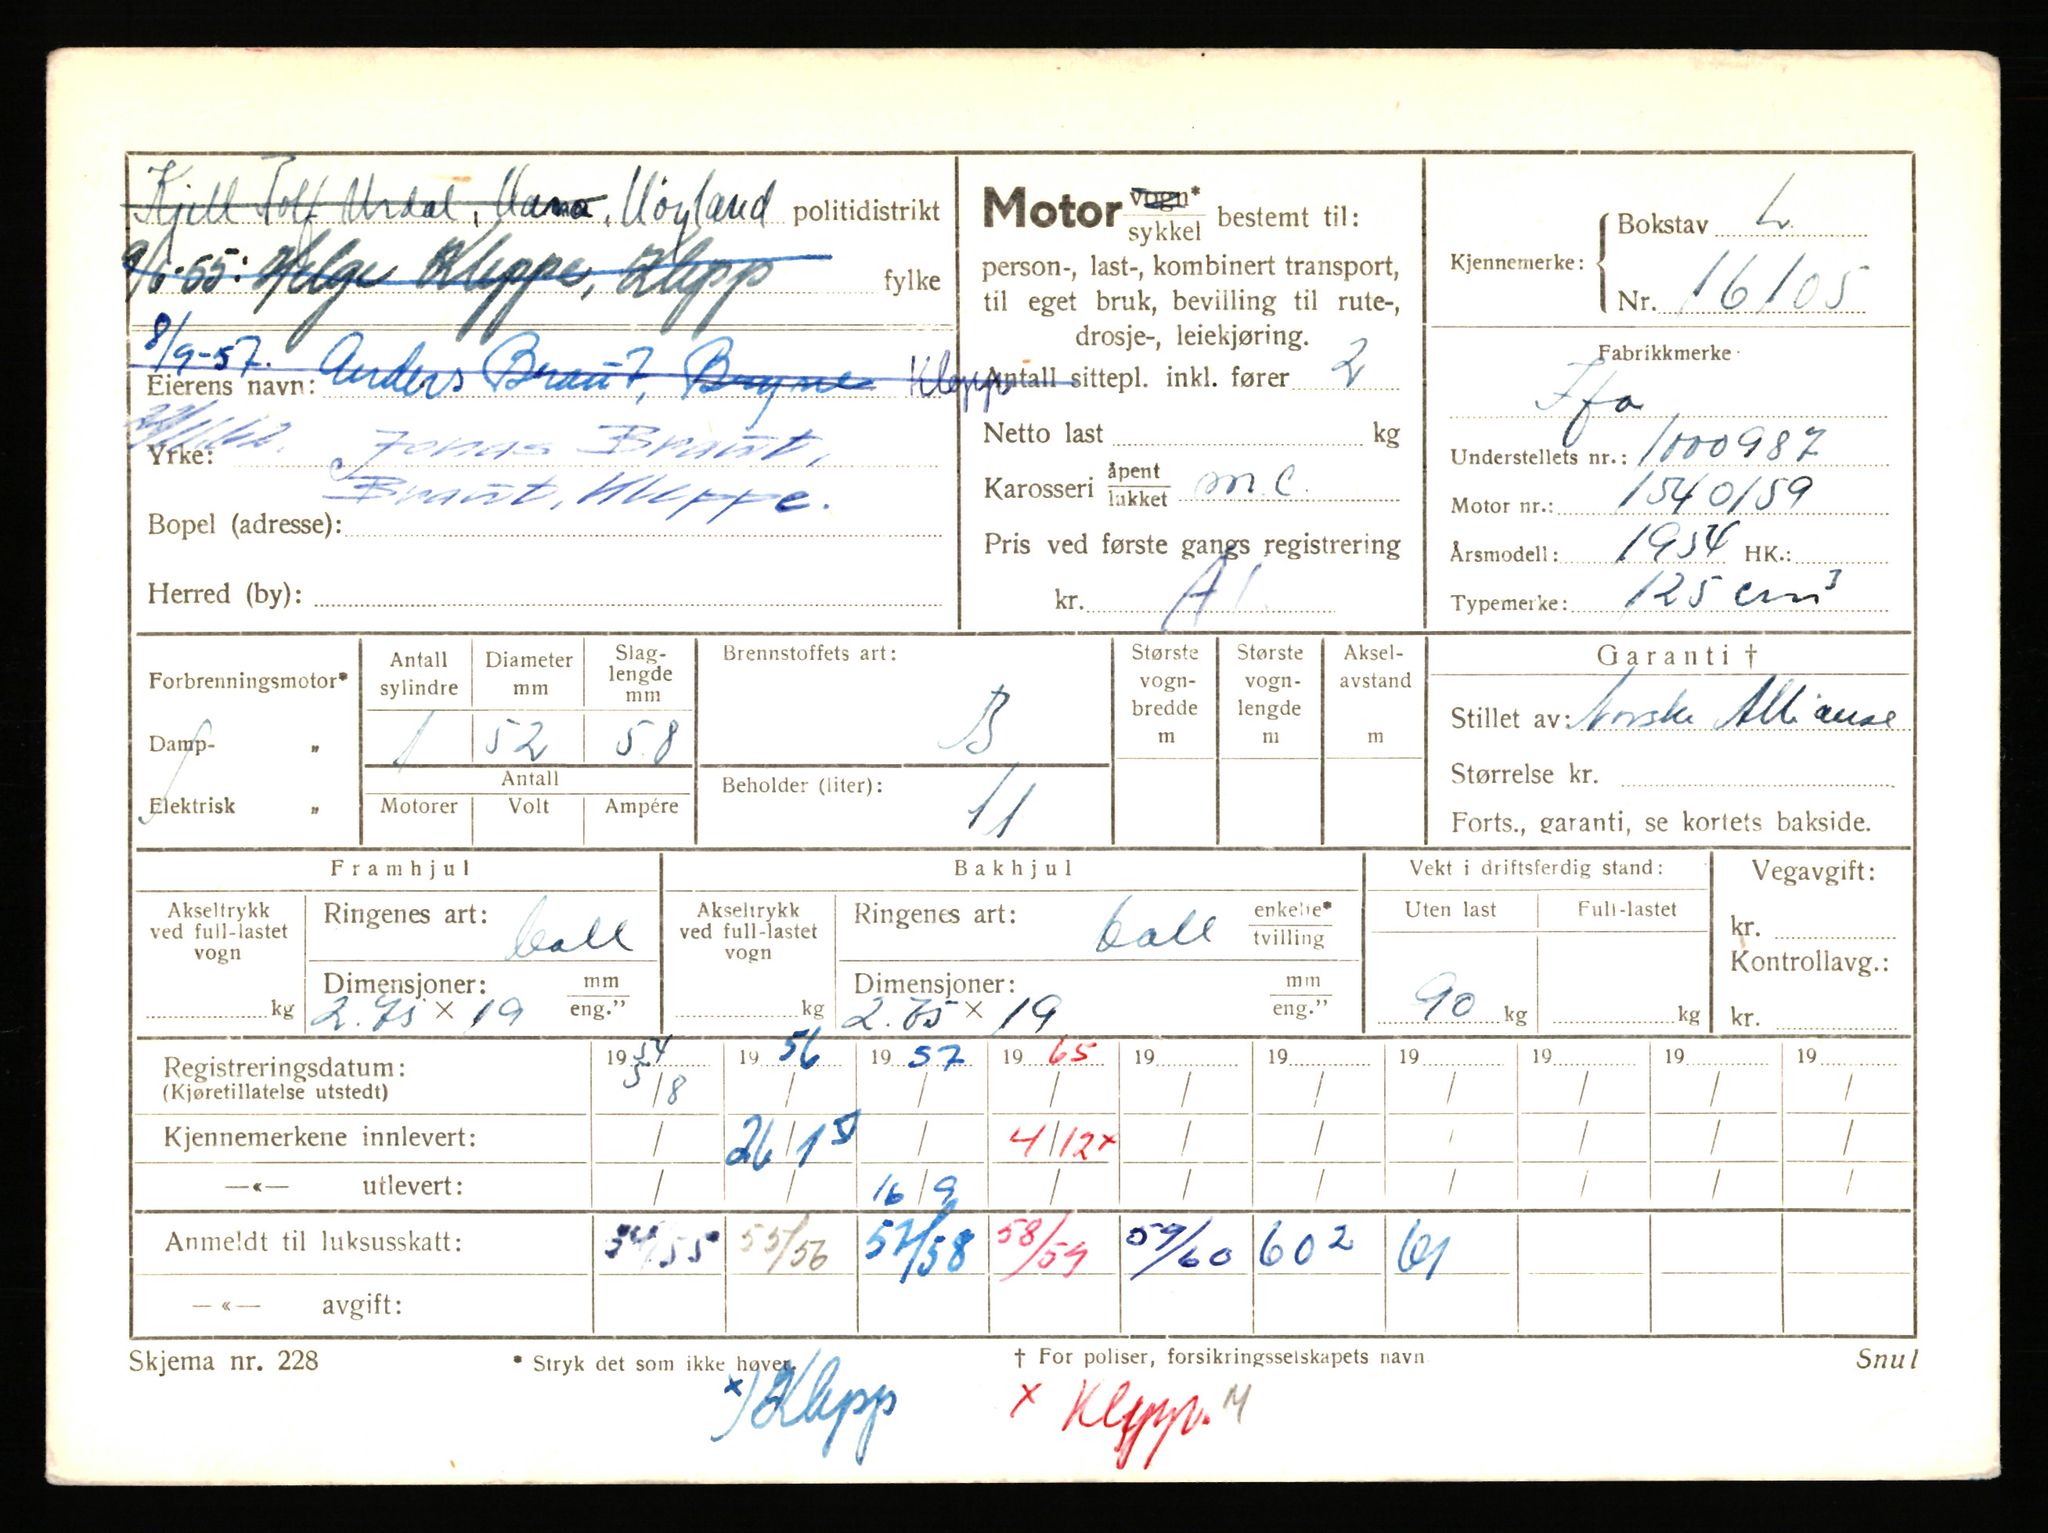 Kjell Tolf Urdal, Vana, Höyland politidistrikt
9/6-55: Helge Kleppe, Klepp fylke
8/9-57. Anders Braut, Bryne Klepp
Eierens navn:
Yrke: Jonas Braut,
Braut, Kleppe.
Bopel (adresse):
Herred (by):
Motor vogn* sykkel bestemt til:
person-, last-, kombinert transport,
til eget bruk, bevilling til rute-,
drosje-, leiekjøring.
Antall sittepl. inkl. fører 2
Netto last kg
Karosseri åpent lukket m.c.
Pris ved første gangs registrering
kr. A1.
Kjennemerke: Bokstav L.
Nr. 16105
Fabrikkmerke
Ifa
Understellets nr.: 1000987
Motor nr.: 1540159
Årsmodell: 1954 HK.:
Typemerke: 125 cm3
Forbrenningsmotor*
Damp- „
Elektrisk „
Antall sylindre Diameter mm Slaglengde mm
1 52 58
Antall
Motorer Volt Ampére
Brennstoffets art:
B
Beholder (liter):
11
Største vogn-bredde m
Største vogn-lengde m
Aksel-avstand m
Garanti †
Stillet av: Norske Allianse
Størrelse kr.
Forts., garanti, se kortets bakside.
Framhjul
Akseltrykk ved full-lastet vogn
kg
Ringenes art: ball
Dimensjoner: mm eng."
2.75 × 19
Bakhjul
Akseltrykk ved full-lastet vogn
kg
Ringenes art: ball enkelte* tvilling
Dimensjoner: mm eng."
2.75 × 19
Vekt i driftsferdig stand:
Uten last Full-lastet
90 kg kg
Vegavgift:
kr.
Kontrollavg.:
kr.
Registreringsdatum: 1954 1956 1957 1965 19 19 19 19 19 19
(Kjøretillatelse utstedt) 5/8 / / / / / / / / /
Kjennemerkene innlevert: / 26/1 / 4/12× / / / / / /
—«— utlevert: / / 16/9 / / / / / / /
Anmeldt til luksusskatt: 54/55 55/56 57/58 58/59 59/60 602 61
—«— avgift:
Skjema nr. 228 * Stryk det som ikke høver. † For poliser, forsikringsselskapets navn Snul
×) Klepp × Klepp. M